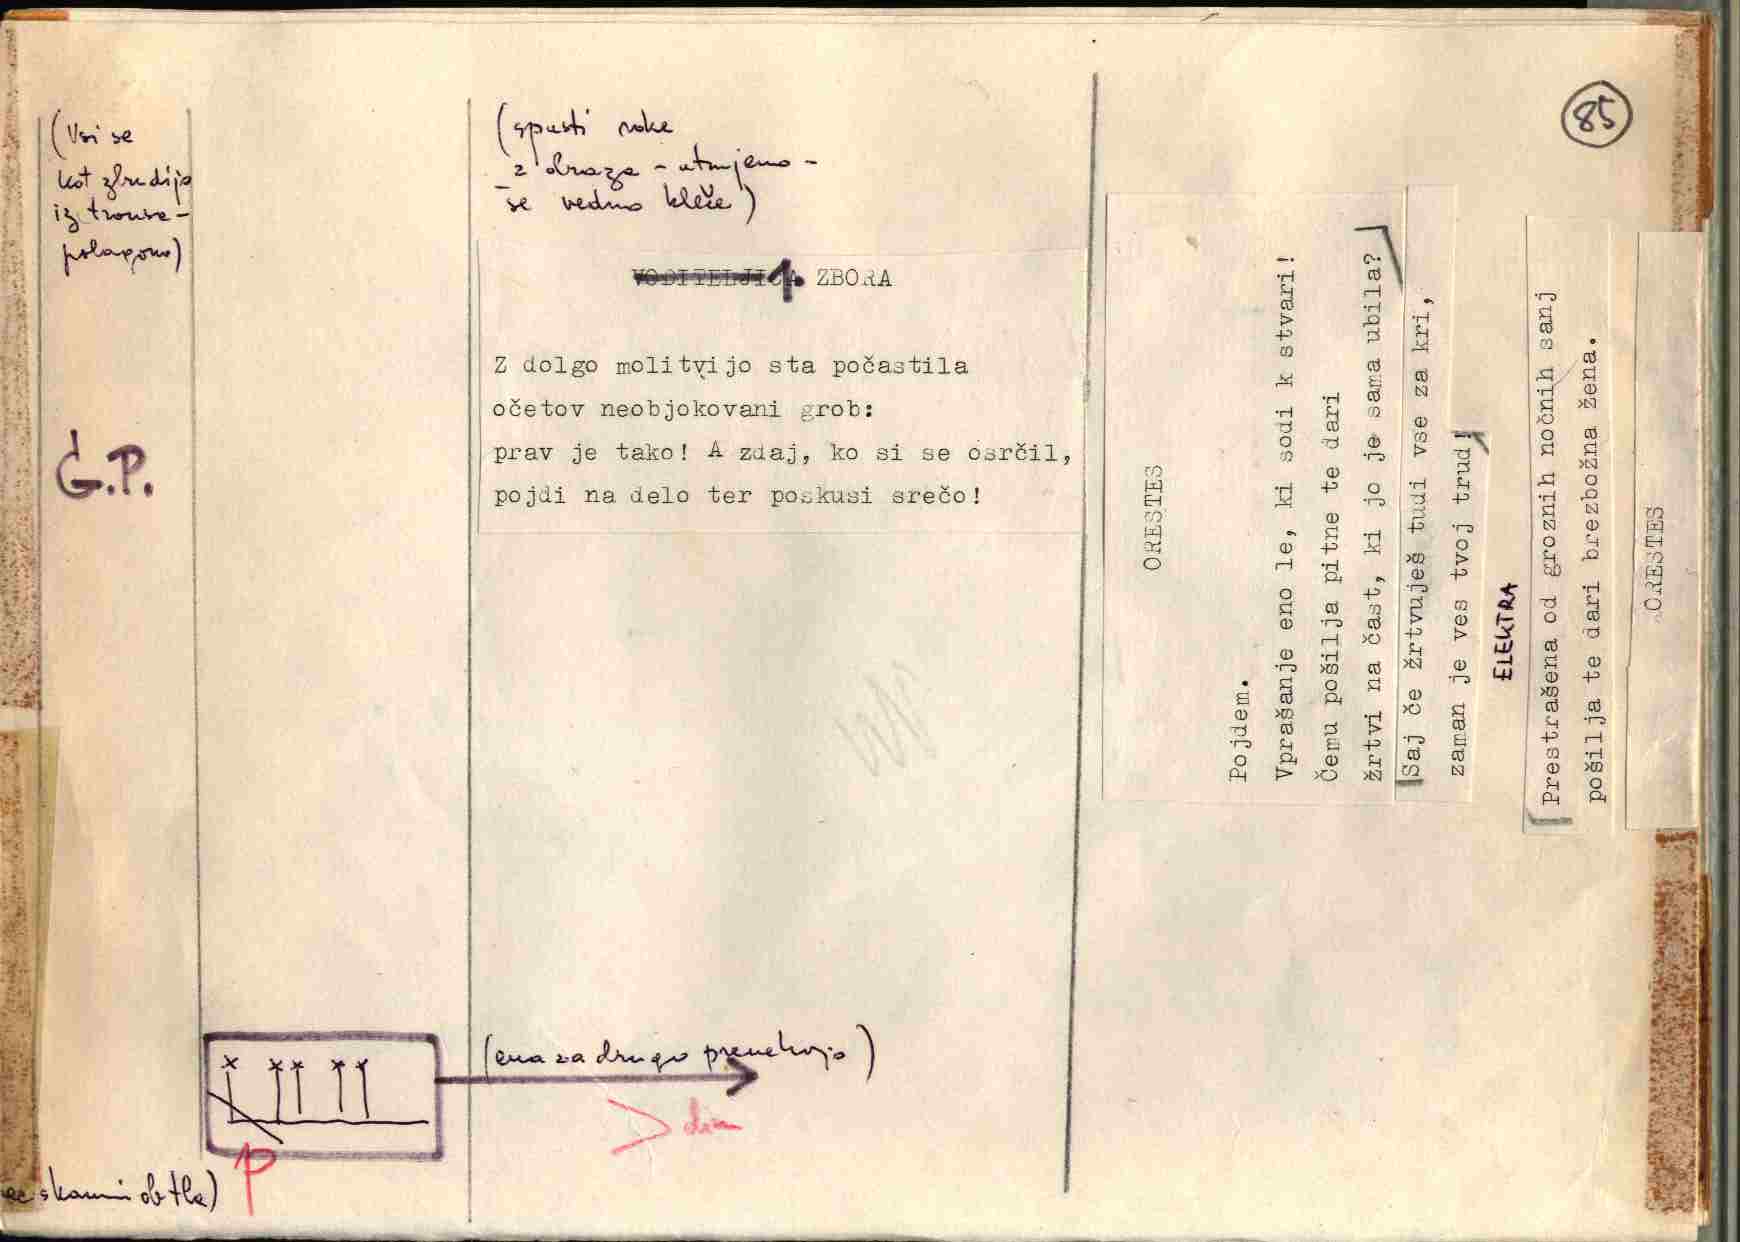 85
(Vsi se
kot zbudijo
iz transa -
polagoma)
G.P.
(spusti roke
z obraza - utrujeno -
še vedno kleče)
VODITELJICA 1. ZBORA
Z dolgo molitvijo sta počastila
očetov neobjokovani grob:
prav je tako! A zdaj, ko si se osrčil,
pojdi na delo ter poskusi srečo!
ORESTES
Pojdem.
Vprašanje eno le, ki sodi k stvari!
Čemu pošilja pitne te dari
žrtvi na čast, ki jo je sama ubila?
Saj če žrtvuješ tudi vse za kri,
zaman je ves tvoj trud!
ELEKTRA
Prestrašena od groznih nočnih sanj
pošilja te dari brezbožna žena.
ORESTES
(ena za drugo prenehajo)
dim
p
ob tla)